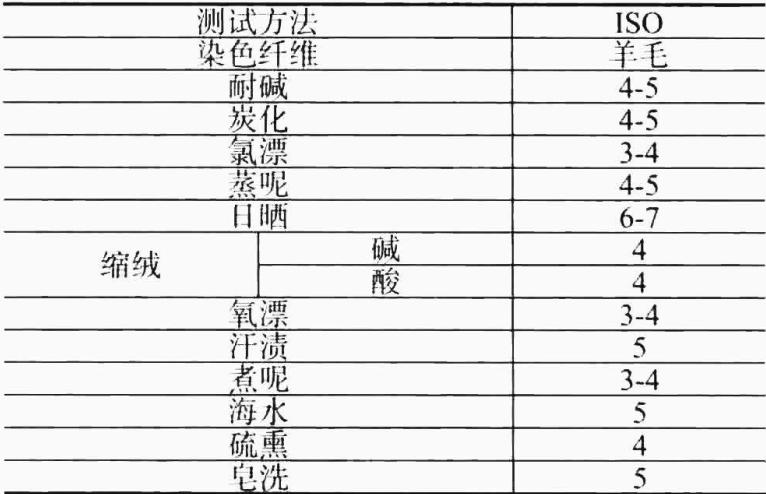 测试方法 ISO
染色纤维 羊毛
耐碱 4-5
炭化 4-5
氯漂 3-4
蒸呢 4-5
日晒 6-7
缩绒 碱 4
酸 4
氧漂 3-4
汗渍 5
煮呢 3-4
海水 5
硫熏 4
皂洗 5